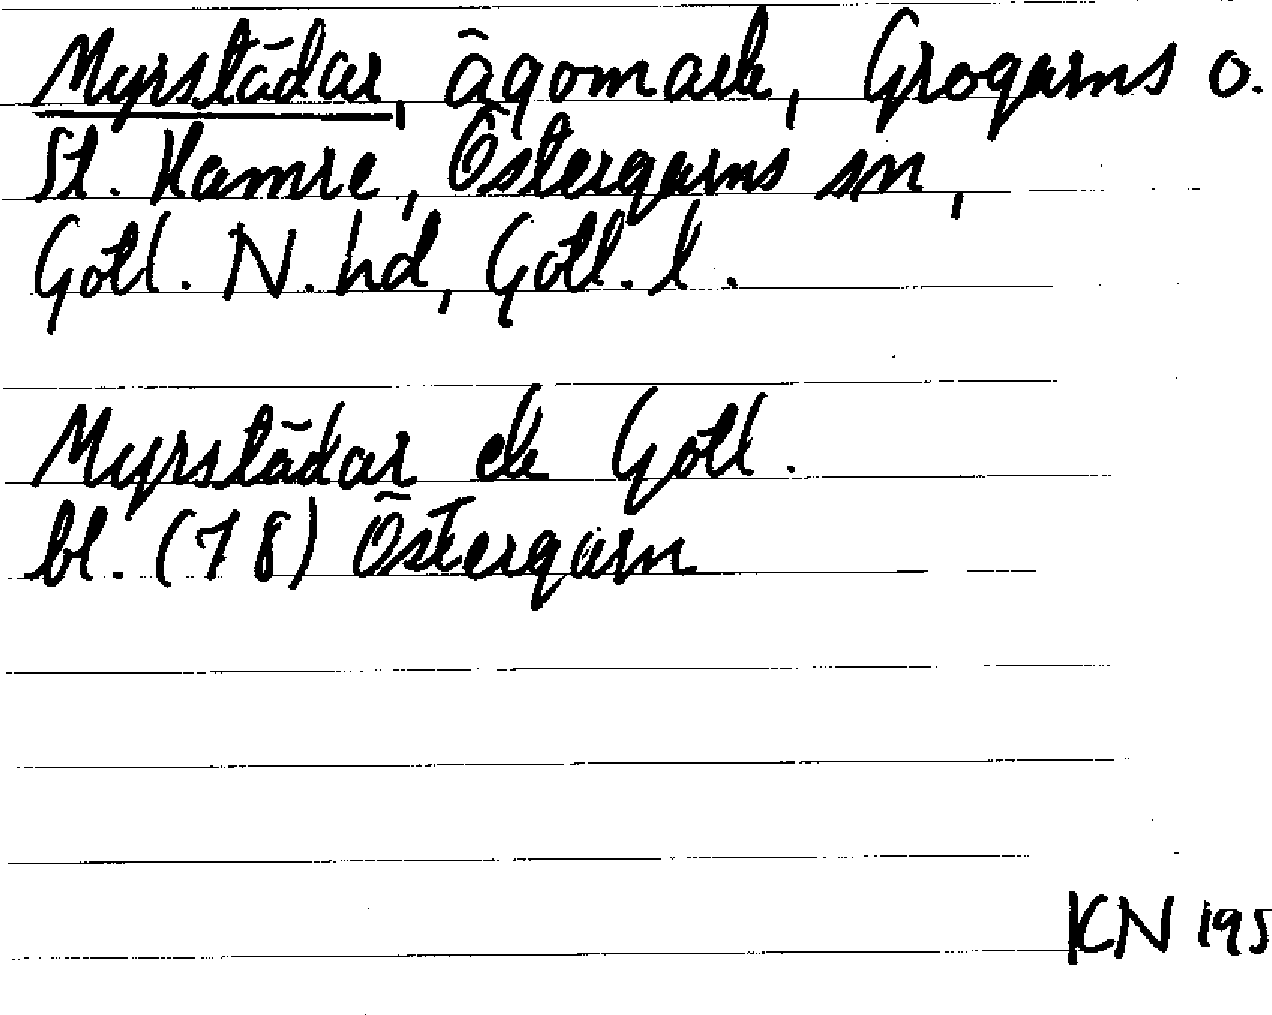 Myrstädar, ägomark, Grogarns o.
St. Hamre, Östergarns sn,
Gotl. N. hd, Gotl. l.
Myrstädar ek Gotl.
bl. (78) Östergarn
KN 195